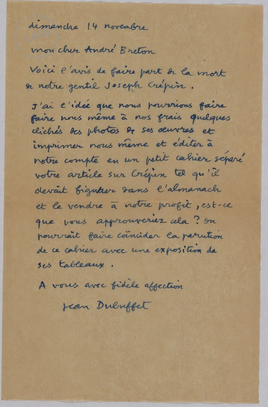 dimanche 14 novembre
mon cher André Breton
Voici l'avis de faire part de la mort
de notre gentil Joseph Crépin.
J'ai l'idée que nous pourrions faire
faire nous même à nos frais quelques
clichés des photos de ses œuvres et
imprimer nous même et éditer à
notre compte en un petit cahier séparé
votre article sur Crépin tel qu'il
devait figurer dans l'almanach
et le vendre à notre profit, est-ce
que vous approuveriez cela ? On
pourrait faire coïncider la parution
de ce cahier avec une exposition de
ses tableaux.
A vous avec fidèle affection
Jean Dubuffet